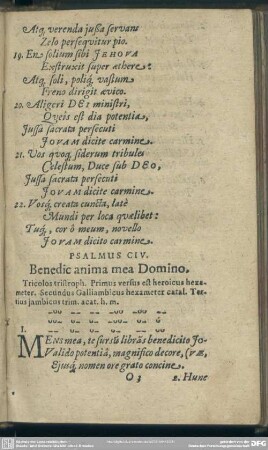 Atq, verenda jussa servans
Zelo persequitur pio.
19. En solium sibi JEHOVA
Exstruxit super æthere:
Atq, soli, poliq, vastum
Freno dirigit ævico.
20. Aligeri DEI ministri,
Queis est dia potentia,
Jussa sacrata persecuti
JOVAM dicite carmine.
21. Vos quoq, siderum tribules
Celestum, Duce sub DEO,
Jussa sacrata persecuti
JOVAM dicite carmine.
22. Vosq, creata cuncta, latè
Mundi per loca quælibet:
Tuq, cor ô meum, novello
JOVAM dicito carmine.
PSALMUS CIV.
Benedic anima mea Domino.
Tricolos tristroph. Primus versus est heroicus hexa-
meter. Secundus Galliambicus hexameter catal. Ter-
tius jambicus trim. acat. h. m.
1.
MEns mea, te sursũ librãs benedicito Jo-
Valido potentiâ, magnifico decore, (væ,
Ejusq, nomen ore grato concine,
O 3 2. Hunc